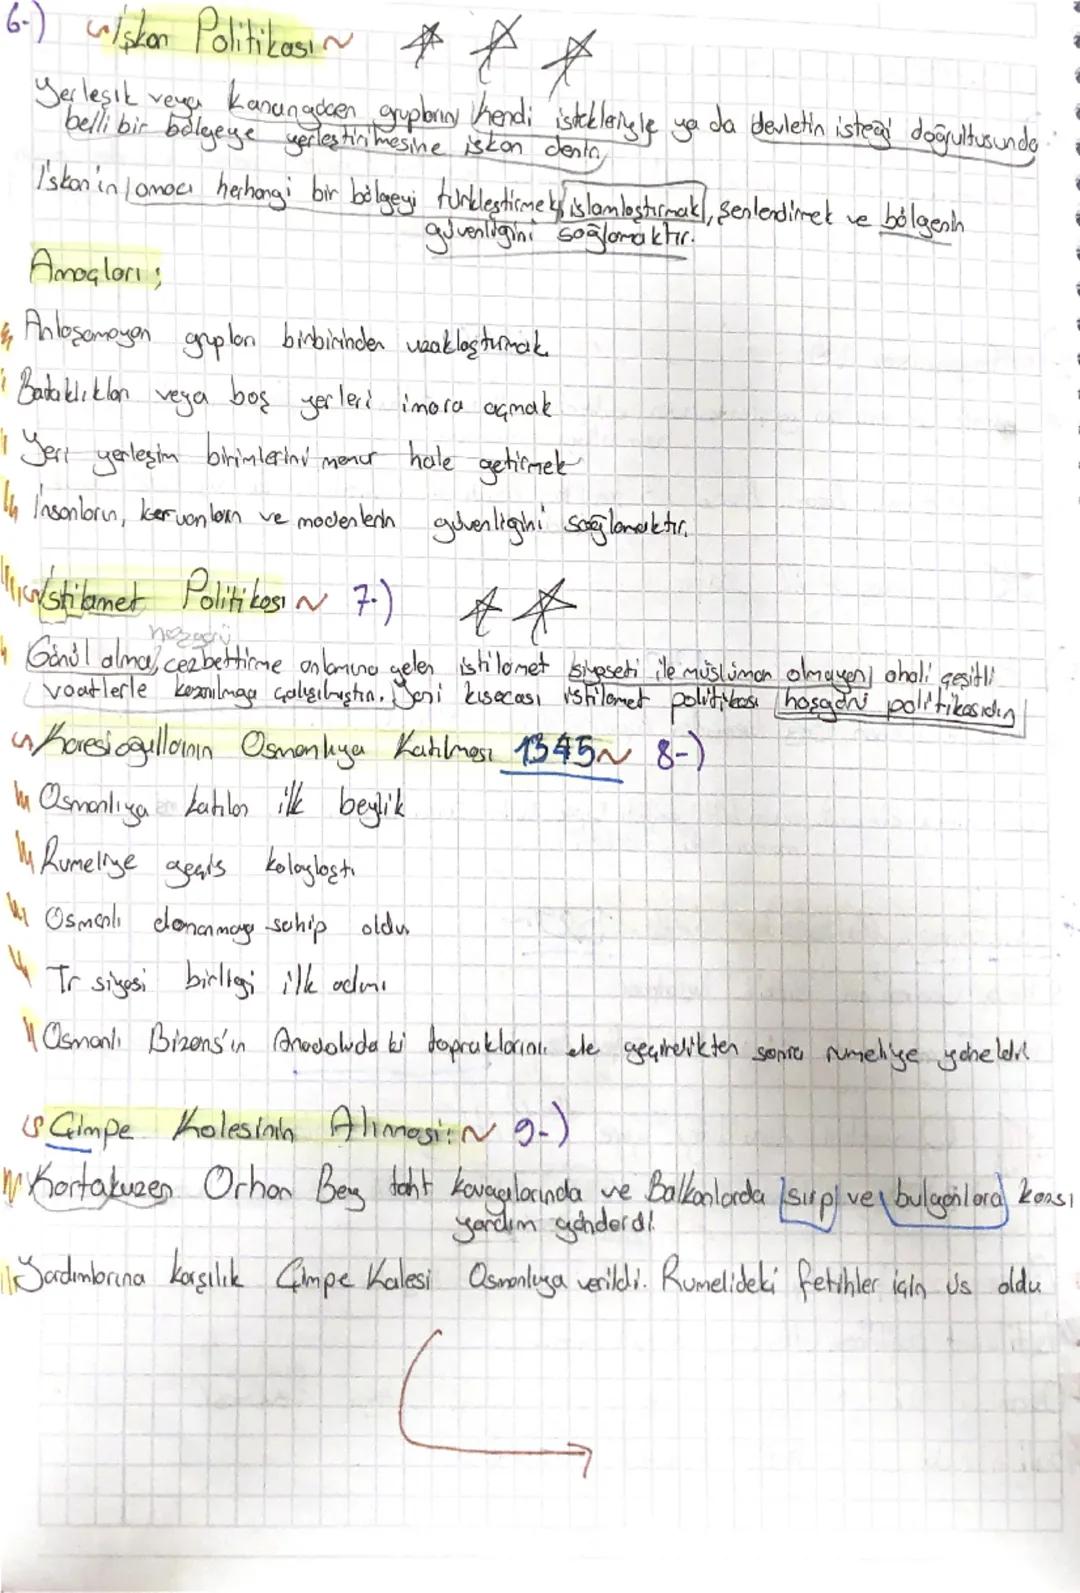 6-) İskan Politikası ~
Yerleşik veya Konargöçer grupların kendi istekleriyle ya da devletin isteği doğrultusunda
belli bir bölgeye yerleştirilmesine iskan denir,
İskan'ın amacı herhangi bir bölgeyi türkleştirmek, islamlaştırmak, şenlendirmek ve bölgenin
güvenliğini sağlamaktır.
Amaçları ;
Anlaşamayan grupları birbirinden uzaklaştırmak
Bataklıkları veya boş yerleri imara açmak
Yeri yerleşim birimlerini hale getirmek
İnsanların, kervanların ve madenlerin güvenliğini sağlamaktır.
İstilamet Politikası ~ 7-)
Gönül alma, cezbettirme anlamına gelen istilamet siyaseti ile müslüman olmayan ahali çeşitli
vaatlerle kazanılmaya çalışılmıştır. Yani kısacası istilamet politikası hoşgörü politikasıdır
Karesioğullarının Osmanlıya Katılması 1345 ~ 8-)
Osmanlıya katılan ilk beylik
Rumeliye geçiş kolaylaştı
Osmanlı donanmaya sahip oldu
Tr siyasi birliği ilk adımı
Osmanlı Bizans'ın Anadoludaki topraklarını ele geçirdikten sonra rumeliye yöneldi
Çimpe Kalesinin Alınması: ~ 9-)
Kortakuzen Orhan Bey taht kavgalarında ve Balkanlarda sırp ve bulgarlara karşı
yardım gönderdi.
Yardımlarına karşılık Çimpe Kalesi Osmanlıya verildi. Rumelideki fetihler için üs oldu